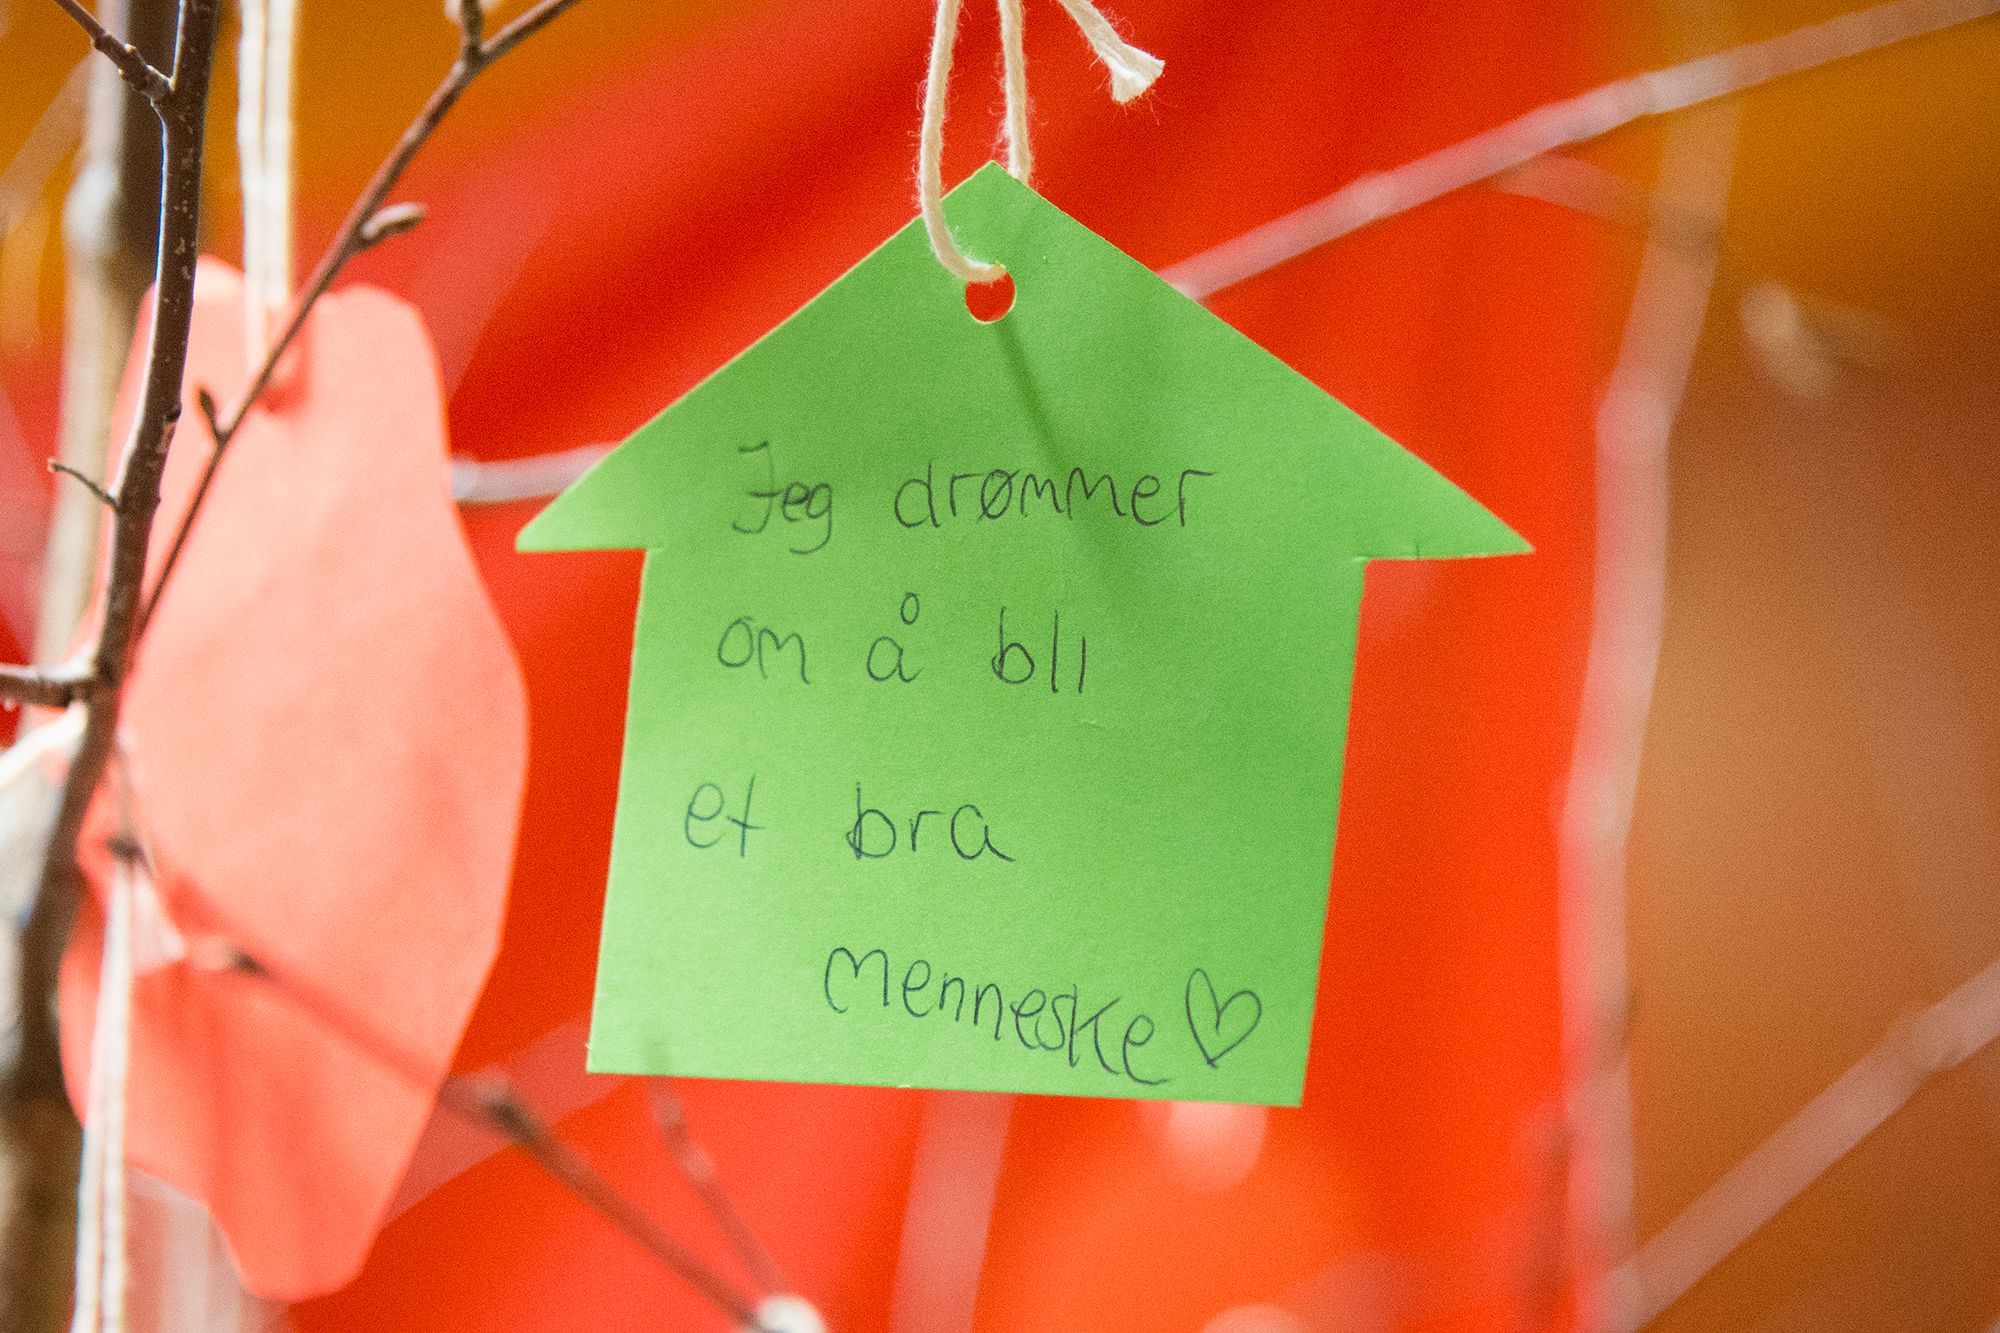 Jeg drømmer
om å bli
et bra
menneske ♡